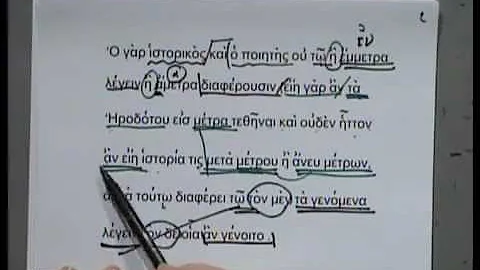 ε
ἐν
Ὁ γὰρ ἱστορικὸς καὶ ὁ ποιητὴς οὐ τῷ ἢ ἔμμετρα
λέγειν ἢ ἄμετρα διαφέρουσιν εἴη γὰρ ἂν τὰ
Ἡροδότου εἰς μέτρα τεθῆναι καὶ οὐδὲν ἧττον
ἂν εἴη ἱστορία τις μετὰ μέτρου ἢ ἄνευ μέτρων,
τούτῳ διαφέρει τῷ τὸν μὲν τὰ γενόμενα
οἷα ἂν γένοιτο.